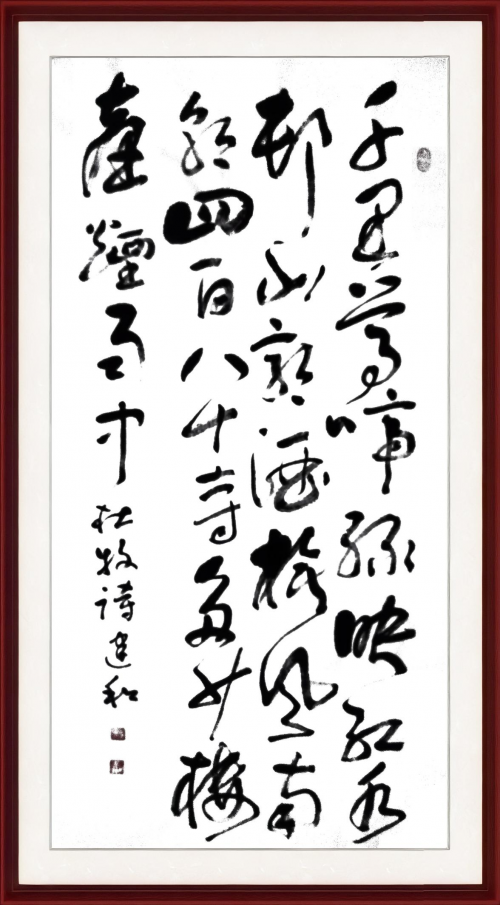 千里莺啼绿映红水
邨山郭酒旗风南
朝四百八十寺多少楼
臺煙雨中
杜牧詩建和